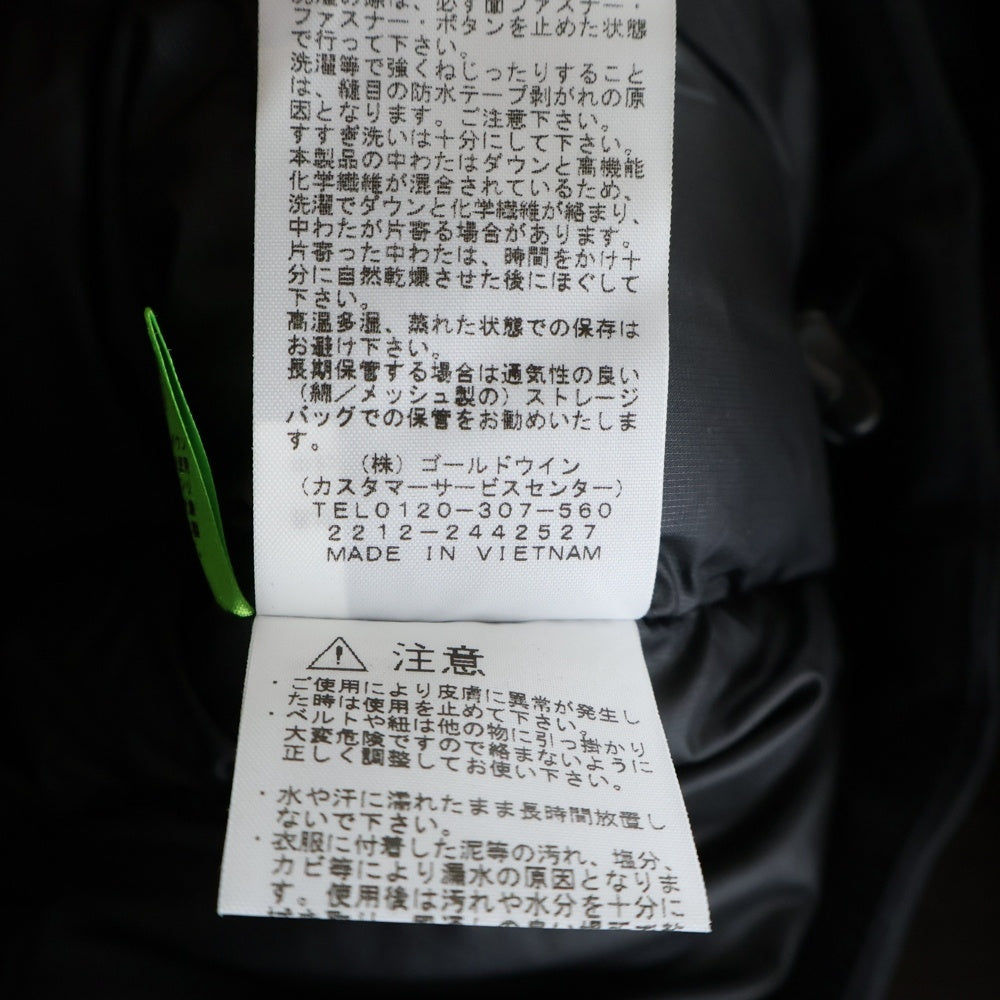 ファスナー・ボタンを止めた状態
で行って下さい。
洗濯等で強くねじったりすること
は、縫目の防水テープ剥がれの原
因となります。ご注意下さい。
すすぎ洗いは十分にして下さい。
本製品の中わたはダウンと高機能
化学繊維が混合されているため、
洗濯でダウンと化学繊維が絡まり、
中わたが片寄る場合があります。
片寄った中わたは、時間をかけ十
分に自然乾燥させた後にほぐして
下さい。
高温多湿、蒸れた状態での保存は
お避け下さい。
長期保管する場合は通気性の良い
（綿／メッシュ製の）ストレージ
バッグでの保管をお勧めいたしま
す。
（株）ゴールドウイン
（カスタマーサービスセンター）
TEL0120-307-560
2212-2442527
MADE IN VIETNAM
注意
・ご使用により皮膚に異常が発生し
た時は使用を止めて下さい。
・ベルトや紐は他の物に引っ掛かり
大変危険ですので絡まないように
正しく調整してお使い下さい。
・水や汗に濡れたまま長時間放置し
ないで下さい。
・衣服に付着した泥等の汚れ、塩分、
カビ等により漏水の原因となりま
す。使用後は汚れや水分を十分に